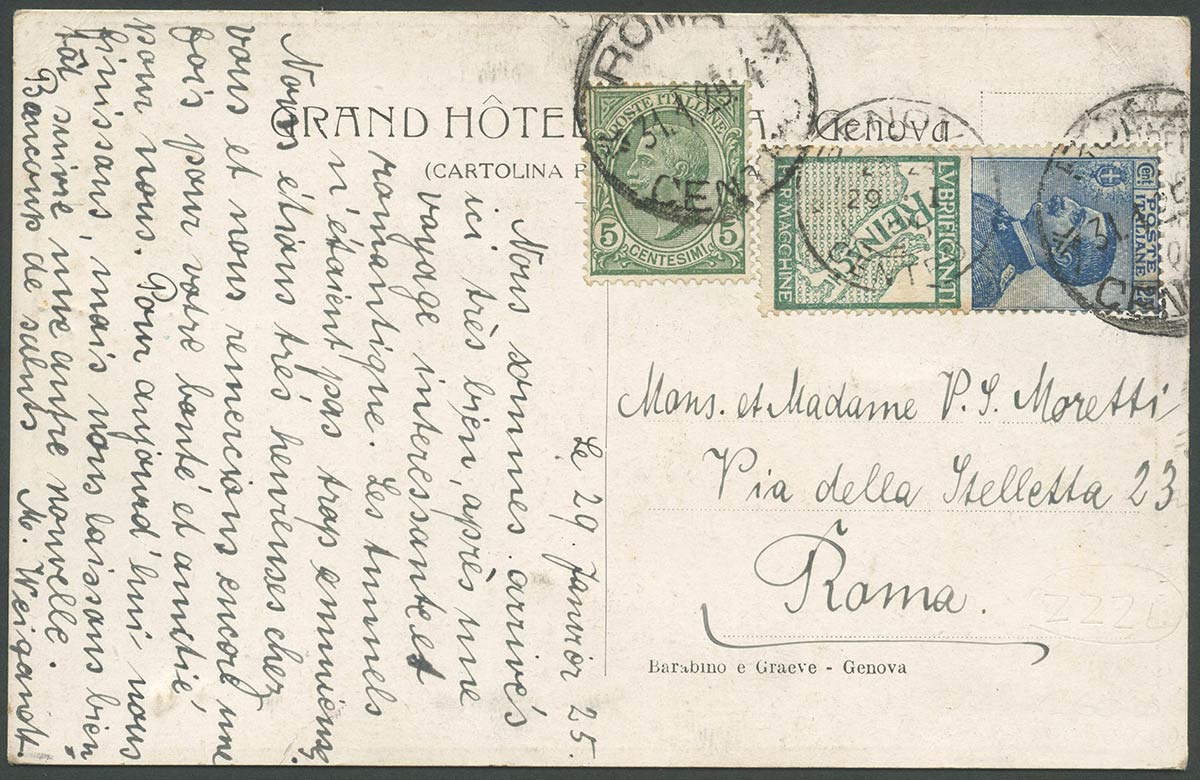 GRAND HÔTEL
Genova
(CARTOLINA P
POSTE ITALIANE
5 CENTESIMI 5
ROMA
31.1
CENTRO
LVBRIFICANTI
REINACH
PER MACCHINE
POSTE
ITALIANE
Cent. 25
29
31
Le 29. Janvier 25.
Nous sommes arrivés
ici très bien, après une
voyage interessante et
romantique. Les tunnels
n'étaient pas trop ennuieux.
Nous étions très heureuses chez
vous et nous remercions encore une
fois pour votre bonté et amitié,
pour nous. Pour aujourd'hui nous
finissons, mais nous laissons bien-
tôt suivre une autre nouvelle.
Beaucoup de saluts M. Weigandt.
Mons. et Madame P. S. Moretti
Via della Stelletta 23
Roma.
Barabino e Graeve - Genova